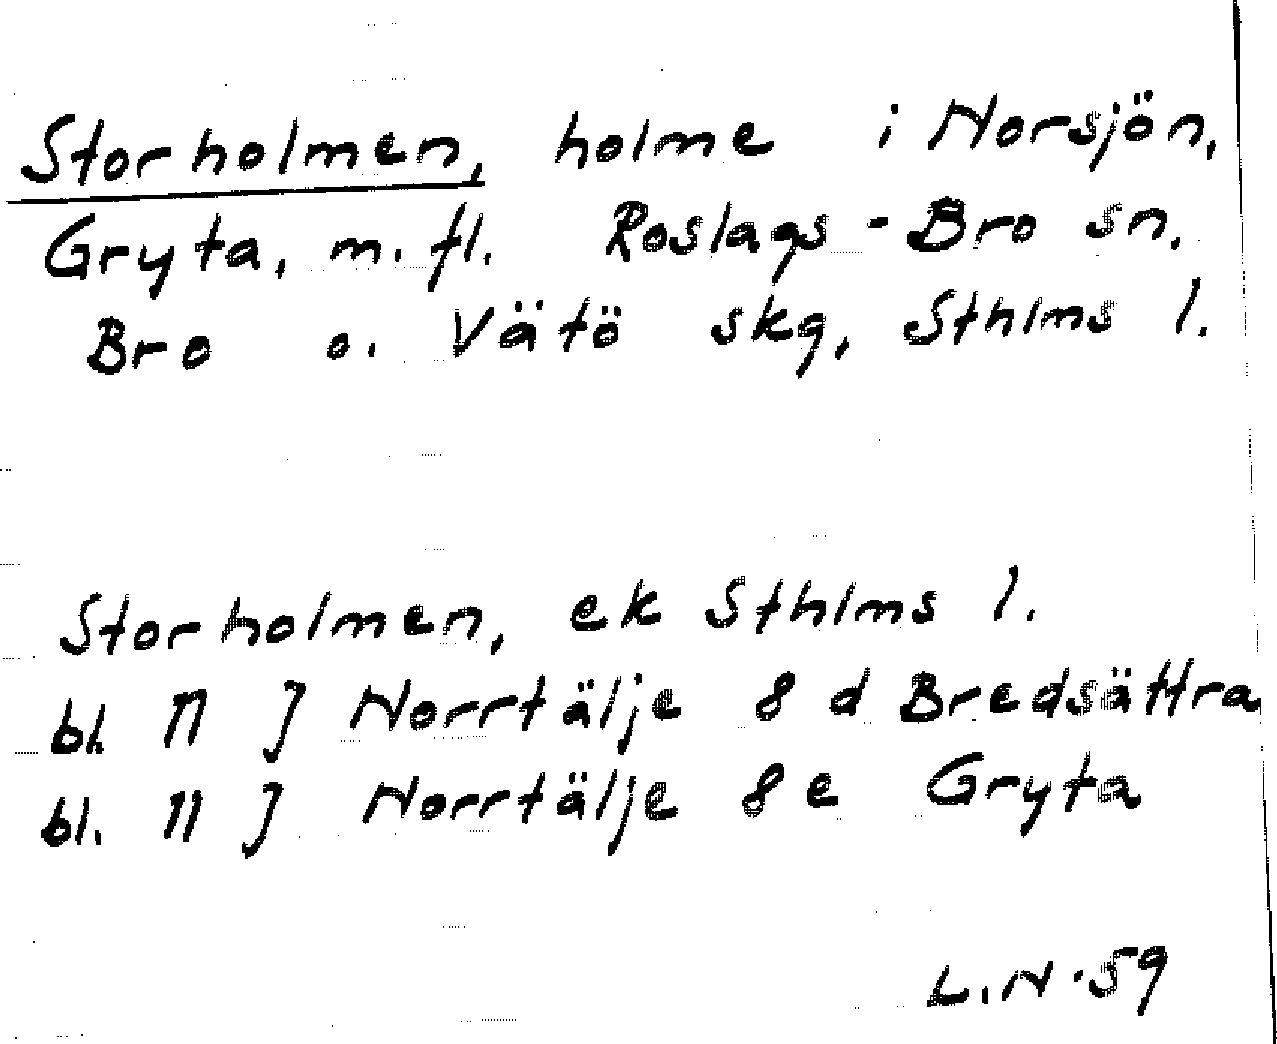 Storholmen, holme i Norsjön,
Gryta, m. fl. Roslags-Bro sn.
Bro o. Vätö skg, Sthlms l.
Storholmen, ek Sthlms l.
bl. 11 J Norrtälje 8 d Bredsättra
bl. 11 J Norrtälje 8 e Gryta
L.N.59